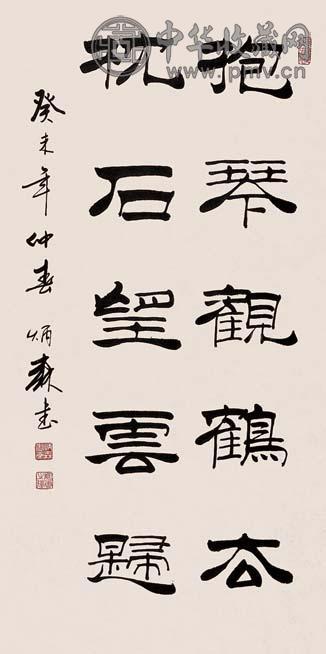 中华收藏网
www.pmv.cn
抱琴觀鶴去
枕石望雲歸
癸未年仲春 炳森書